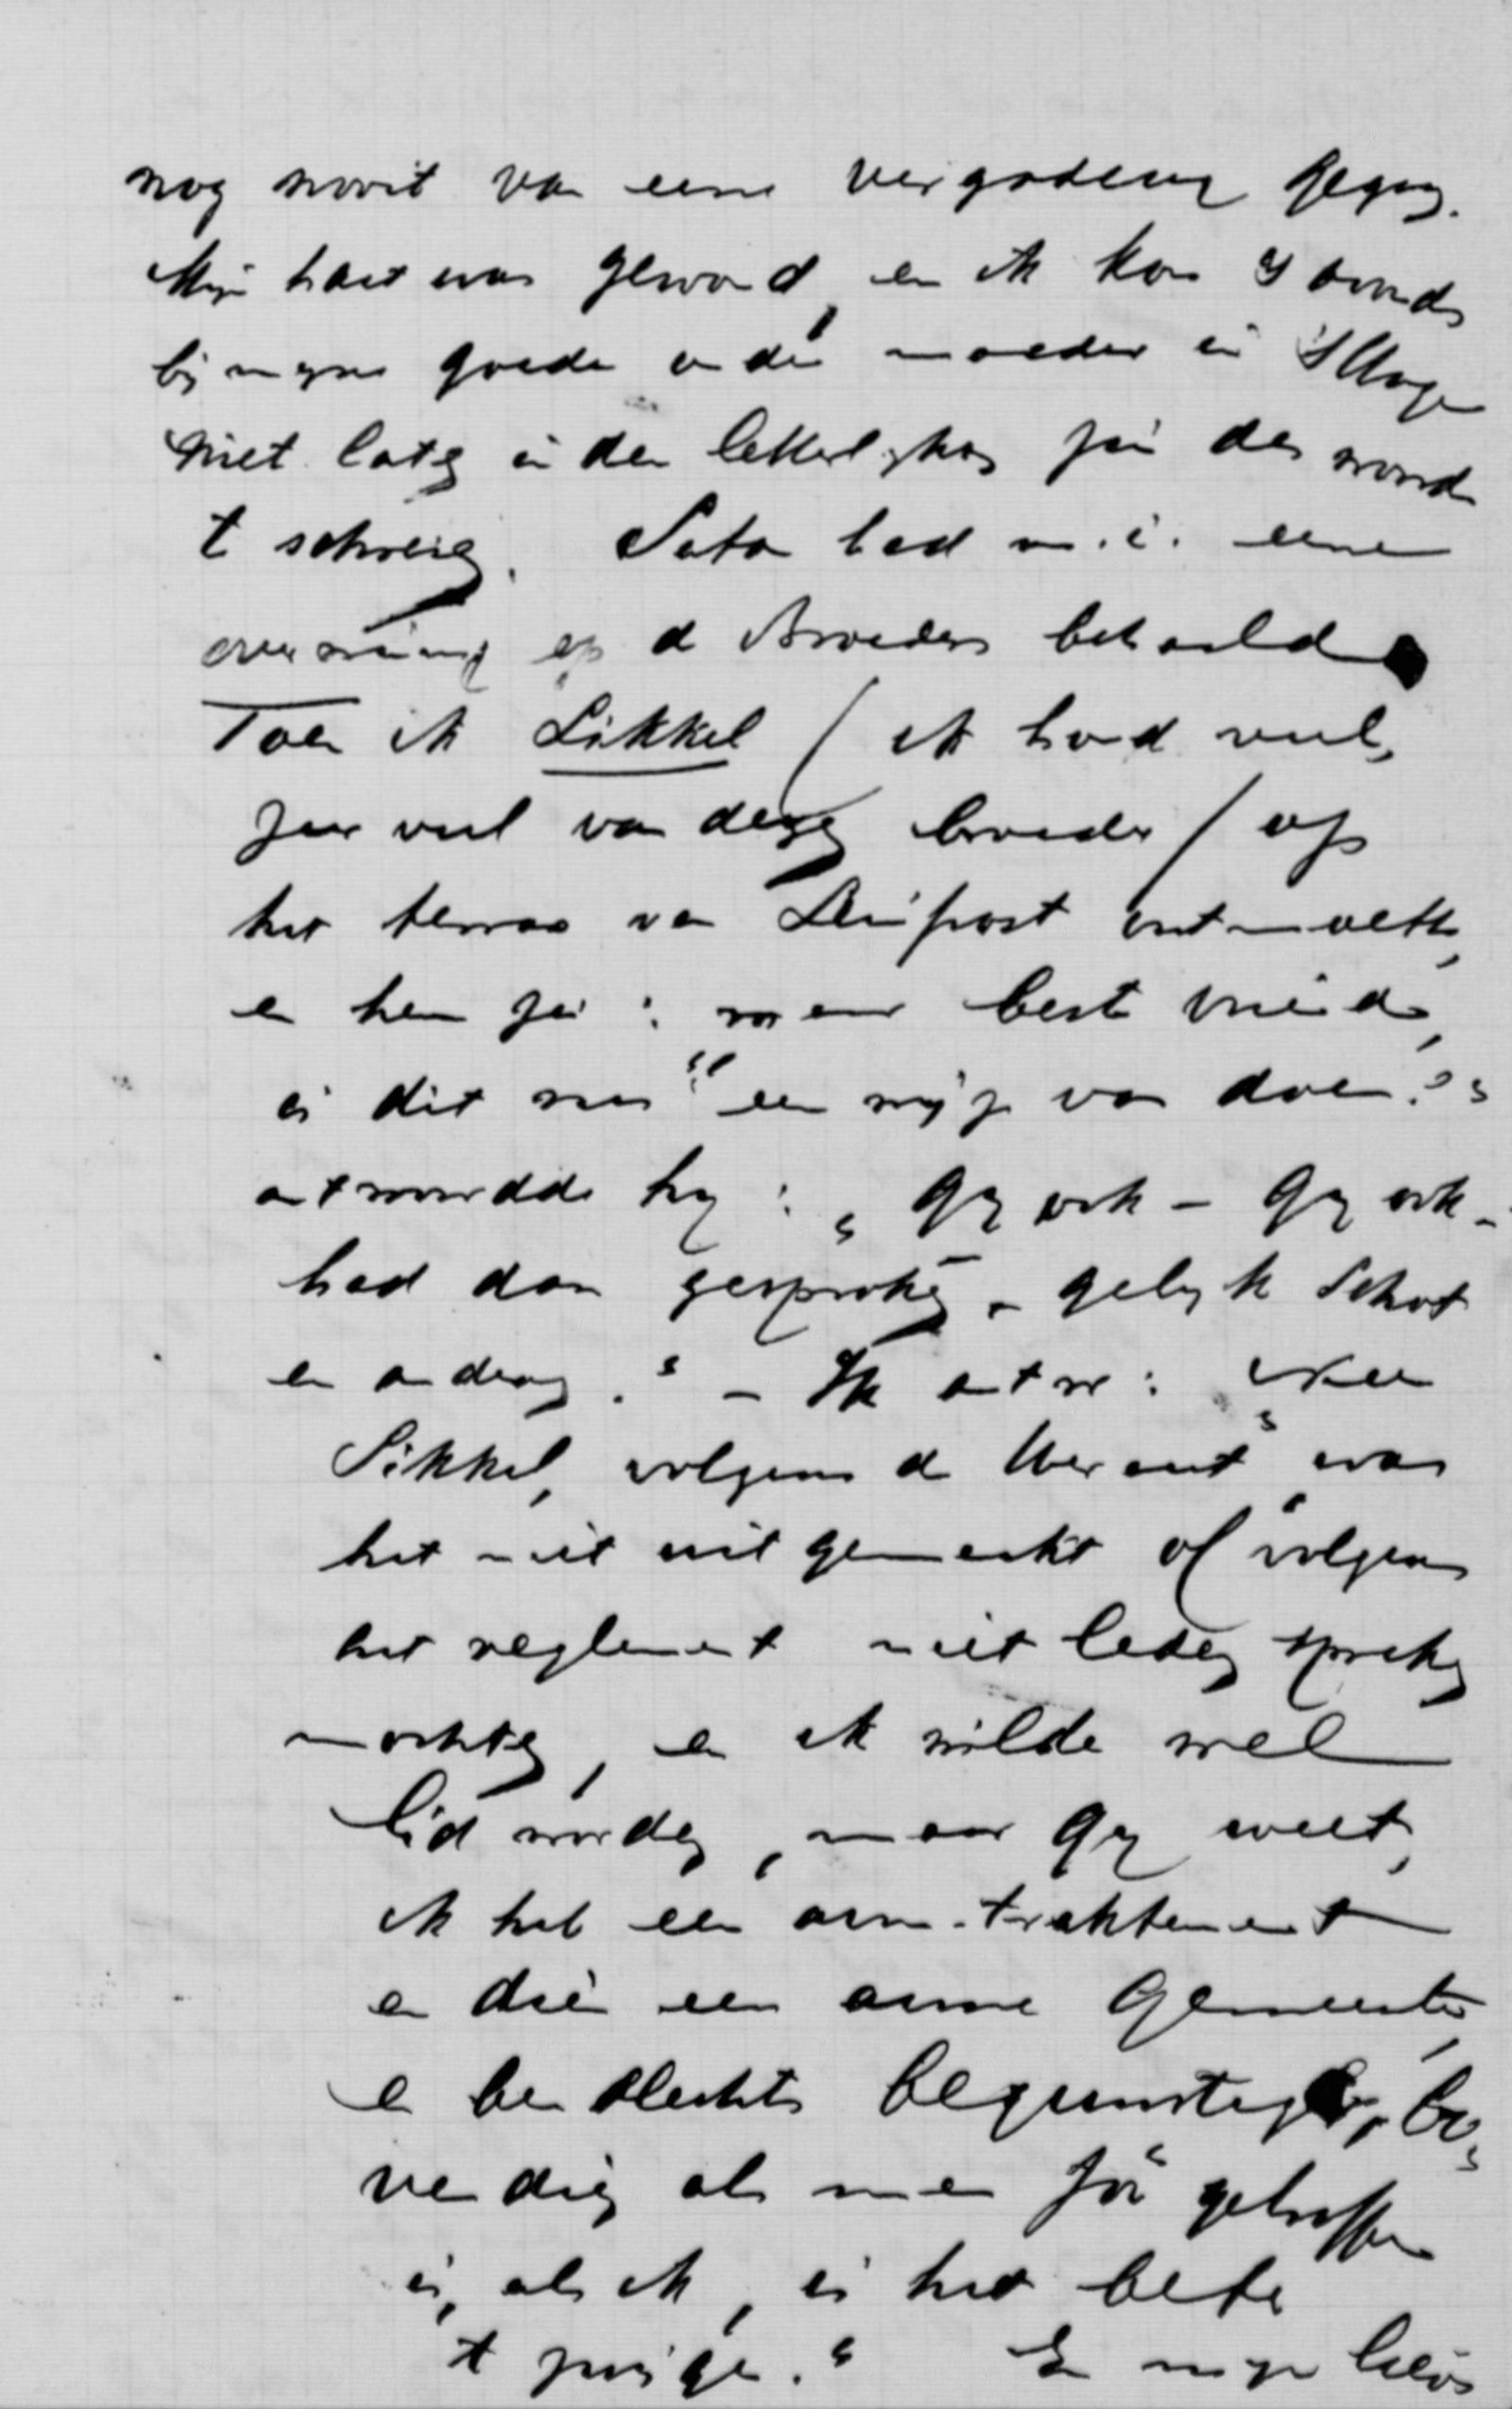 nog nooit van eene vergadering gegaan.
Mijn hart was gewond, en ik kon 's avonds
bij mijne goede oude moeder in 's Hage
niet laten in den letterlyken zin des woords
te schreien. Satan had m.i. eene
overwinning op de Broeders behaald
Toen ik Sikkel (ik houd veel,
zeer veel van dezen broeder) op
het terras van Seinpost ontmoette,
en hem zei: mijn beste vriend,
is dit nu een wijze van doen?"
antwoordde hy: „Gy ook – Gy ook –
had dan gesproken – gelyk Schot
en anderen." – Ik antw: „Neen
Sikkel, volgens de Heraut was
het niet uitgemaakt of volgens
het reglement niet leden spreken
mochten, en ik wilde wel
lid worden, maar gy weet,
ik heb een arm-traktement
en dien een arme Gemeente,
en ben slechts begunstiger, bo-
vendien als men zóó getroffen
is, als ik, is het beter
te zwijgen." En mijn